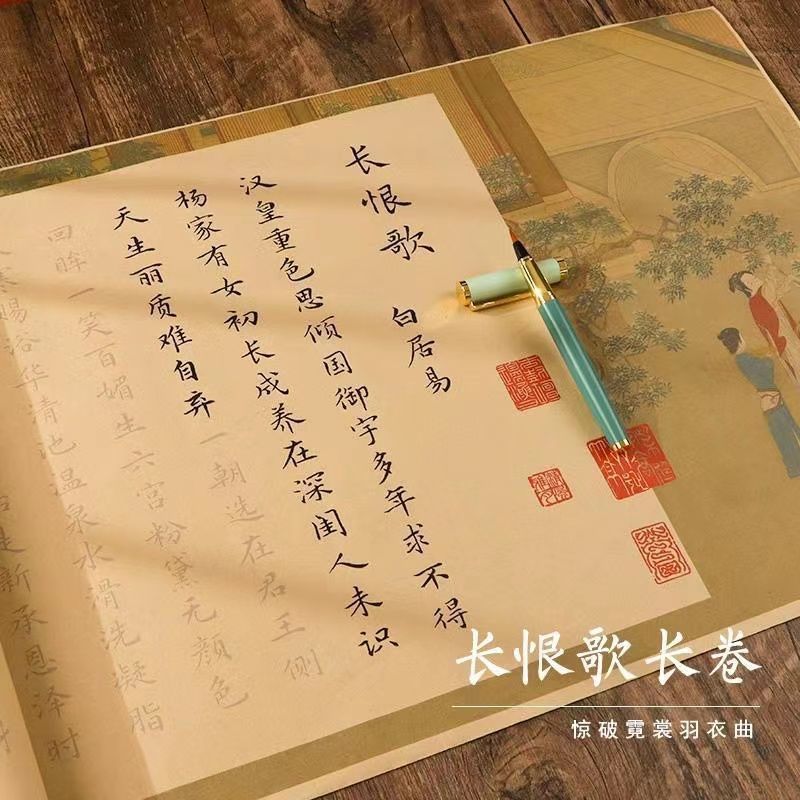 长恨歌
白居易
汉皇重色思倾国御宇多年求不得
杨家有女初长成养在深闺人未识
天生丽质难自弃一朝选在君王侧
回眸一笑百媚生六宫粉黛无颜色
赐浴华清池温泉水滑洗凝脂
新承恩泽时
长恨歌长卷
惊破霓裳羽衣曲